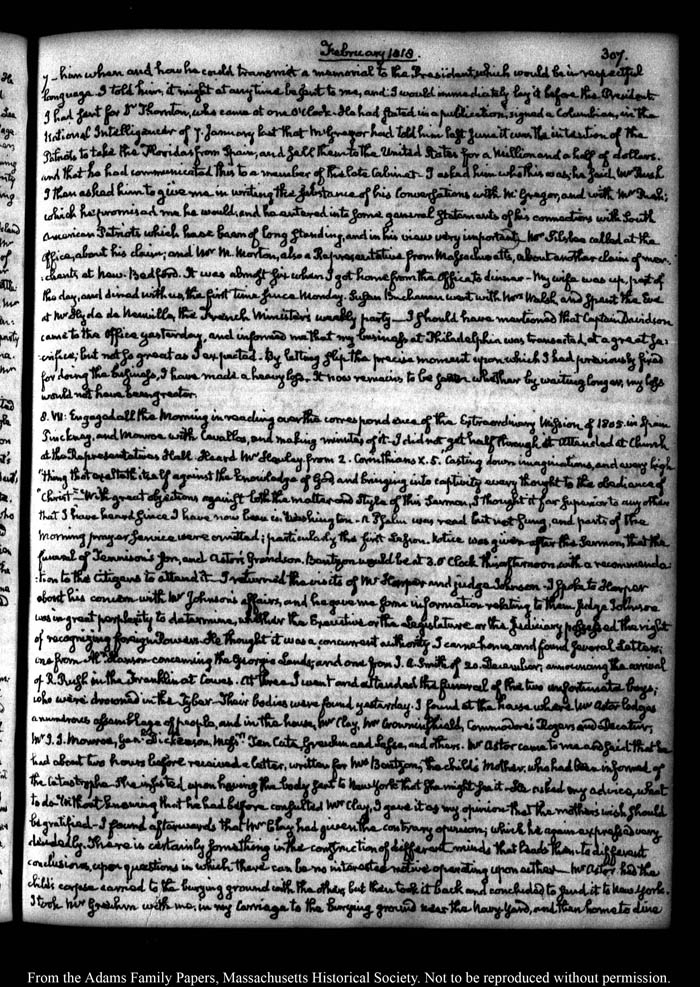 February 1818. 307.
y— him when and how he could transmit a memorial to the President, which would be in respectful
language. I told him, it might at any time be sent to me, and I would immediately lay it before the President.
I had sent for Dr. Thornton, who came at one o'Clock. He had stated in a publication, signed a Columbian, in the
National Intelligencer of 7. January last that McGregor had told him last June it was the intention of the
Patriots to take the Floridas from Spain, and sell them to the United States for a Million and a half of dollars.
and that he had communicated this to a member of the late Cabinet. I asked him who this was; he said, Mr. Rush
I then asked him to give me in writing the substance of his conversations with McGregor, and with Mr. Rush;
which he promised me he would, and he entered into some general statements of his connections with South
American Patriots which have been of long standing, and in his view very important. Mr. Silsbee called at the
Office, about his claim; and Mr. M. Morton, also a Representative from Massachusetts, about another claim of mer-
chants at New-Bedford. It was almost six when I got home from the Office to dinner— My wife was up, part of
this day, and dined with us, the first time since Monday. Susan Buchanan went with Mrs. Walsh, and spent the Eve
at Mr. Hyde de Neuville, the French Minister's weekly party— I should have mentioned that Captain Davidson
came to the Office yesterday, and informed me that my business at Philadelphia was transacted, at a great sa-
crifice; but not so great as I expected. By letting slip the precise moment upon which I had previously fixed
for doing the business, I have made a heavy loss. It now remains to be seen whether by waiting longer, my loss
would not have been greater.
8. VII: Engaged all the Morning in reading over the correspondence of the Extraordinary Mission of 1805. in Spain
Pinckney, and Monroe with Cevallos, and making minutes of it— I did not get half through it. Attended at Church
at the Representatives Hall. Heard Mr. Hawley from 2. Corinthians X. 5. "Casting down imaginations, and every high
"thing that exalteth itself against the knowledge of God and bringing into captivity every thought to the obedience of
"Christ—" With great objections against both the matter and style of this Sermon, I thought it far superior to any other
that I have heard since I have now been in Washington— A Psalm was read but not sung, and parts of the
morning prayer service were omitted; particularly the first Lesson. Notice was given after the Sermon, that the
funeral of Tennison's Son, and Astor's Grandson, Bentzon would be at 3. O'Clock this afternoon with a recommenda-
tion to the citizens to attend it. I returned the visits of Mr. Harper and judge Johnson— I spoke to Harper
about his concern with Mr. Johnson's affairs, and he gave me some information relating to them. Judge Johnson
was in great perplexity to determine, whether the Executive or the Legislature or the Judiciary possessed the right
of recognizing foreign Powers. He thought it was a concurrent authority. I came home, and found several Letters;
one from Mr. Hanson concerning the Georgia Lands; and one from J. A. Smith of 20. December, announcing the arrival
of R. Rush in the Franklin at Cowes. At three I went and attended the funeral of the two unfortunate boys;
who were drowned in the Tyber. Their bodies were found yesterday. I found at the house where Mr. Astor lodges
a numerous assemblage of people, and in the house, Mr. Clay, Mr. Crowninshield, Commodores Rogers and Decatur,
Mr. J. J. Monroe, Genl. Dickerson, Messrs. Ten Cate, Greuhm and Lesse, and others. Mr. Astor came to me and said that he
had about two hours before received a letter, written for Mrs. Bentzon, the child's Mother, who had been informed of
the catastrophe. She insisted upon having the body sent to New York that she might see it. He asked my advice, what
to do. Without knowing that he had before consulted Mr. Clay, I gave it as my opinion that the mother's wish should
be gratified— I found afterwards that Mr. Clay had given the contrary opinion; which he again expressed very
decidedly. There is certainly something in the construction of different minds that leads them to different
conclusions, upon questions in which there can be no interested motive operating upon either— Mr. Astor had the
child's corpse carried to the burying ground with the other, but then took it back and concluded to send it to New York.
I took Mr. Greuhm with me, in my carriage to the burying ground near the Navy Yard, and then home to dine
From the Adams Family Papers, Massachusetts Historical Society. Not to be reproduced without permission.